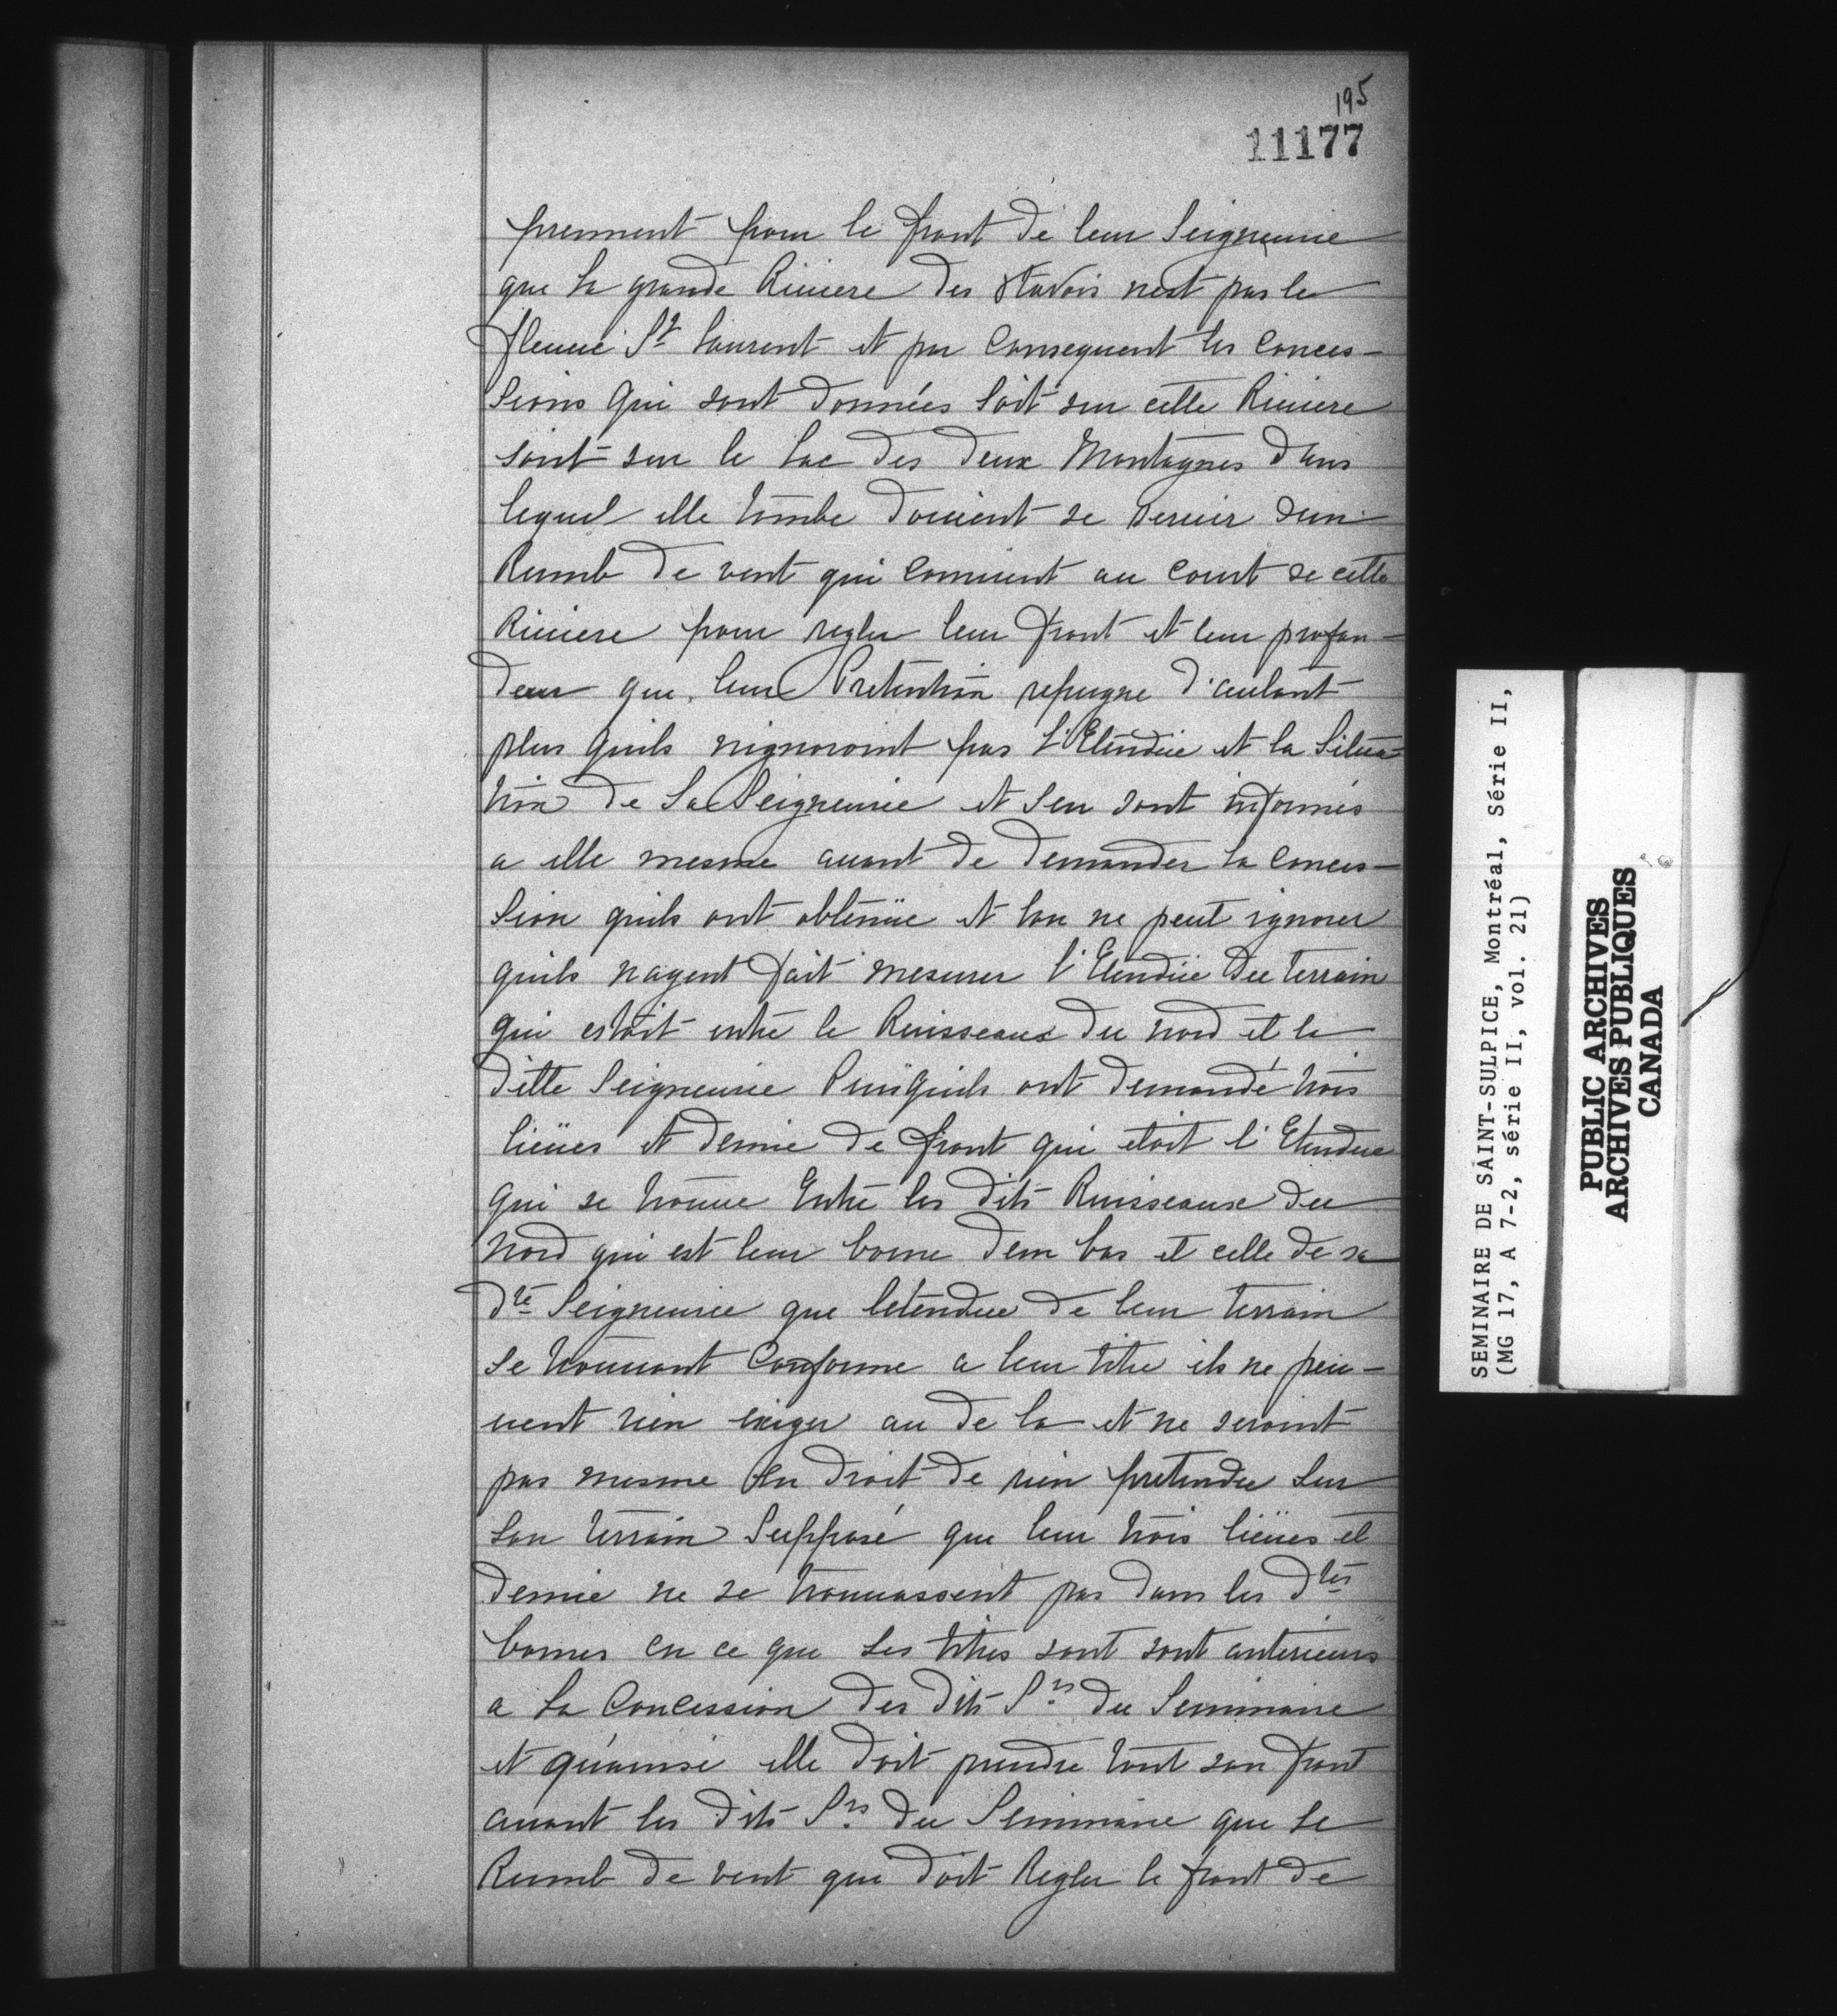 195
11177
prennent pour le front de leur Seigneurie
que la grande Riviere des 8tavois nest pas le
fleuue St Laurent et par Consequent les Conces-
sions qui sont données soit sur cette Riuiere
soit sur le Lac des deux Montagnes dans
lequel elle tombe doiuent se seruir dun
Rumb de vent qui conuient au Court de cette
Riuiere pour regler leur front et leur profon-
deur que leur Pretention repugne d'autant
plus quils nignoroint pas l'Etendüe et la Situa-
tion de Sa Seigneurie et s'en sont informés
a elle mesme auant de demander la Conces-
sion quils ont obtenüe et lon ne peut ignorer
quils nayent fait mesurer l'Etendüe du terrain
qui estoit entre le Ruisseaux du nord et la
ditte Seigneurie Puisquils ont demandé trois
lieües et demie de front qui etoit l'Etendue
qui se trouue Entre les dits Ruisseaux du
Nord qui est leur borne d'em bas et celle de sa
dte Seigneurie que letendue de leur terrain
se trouuant Conforme a leur titre ils ne peu-
uent rien exiger au de la et ne seroint
pas mesme En droit de rien pretendre sur
son terrain Supposé que leur trois lieües et
demie ne se trouuassent pas dans les dtes
bornes en ce que ses titres sont sont anterieurs
a la Concession des dits Srs du Seminaire
et qu'ainsi elle doit prendre tout son front
auant les dits Srs du Seminaire que le
Rumb de vent que doit Regler le front de
SEMINAIRE DE SAINT-SULPICE, Montréal, Série II,
(MG 17, A 7-2, série II, vol. 21)
PUBLIC ARCHIVES
ARCHIVES PUBLIQUES
CANADA